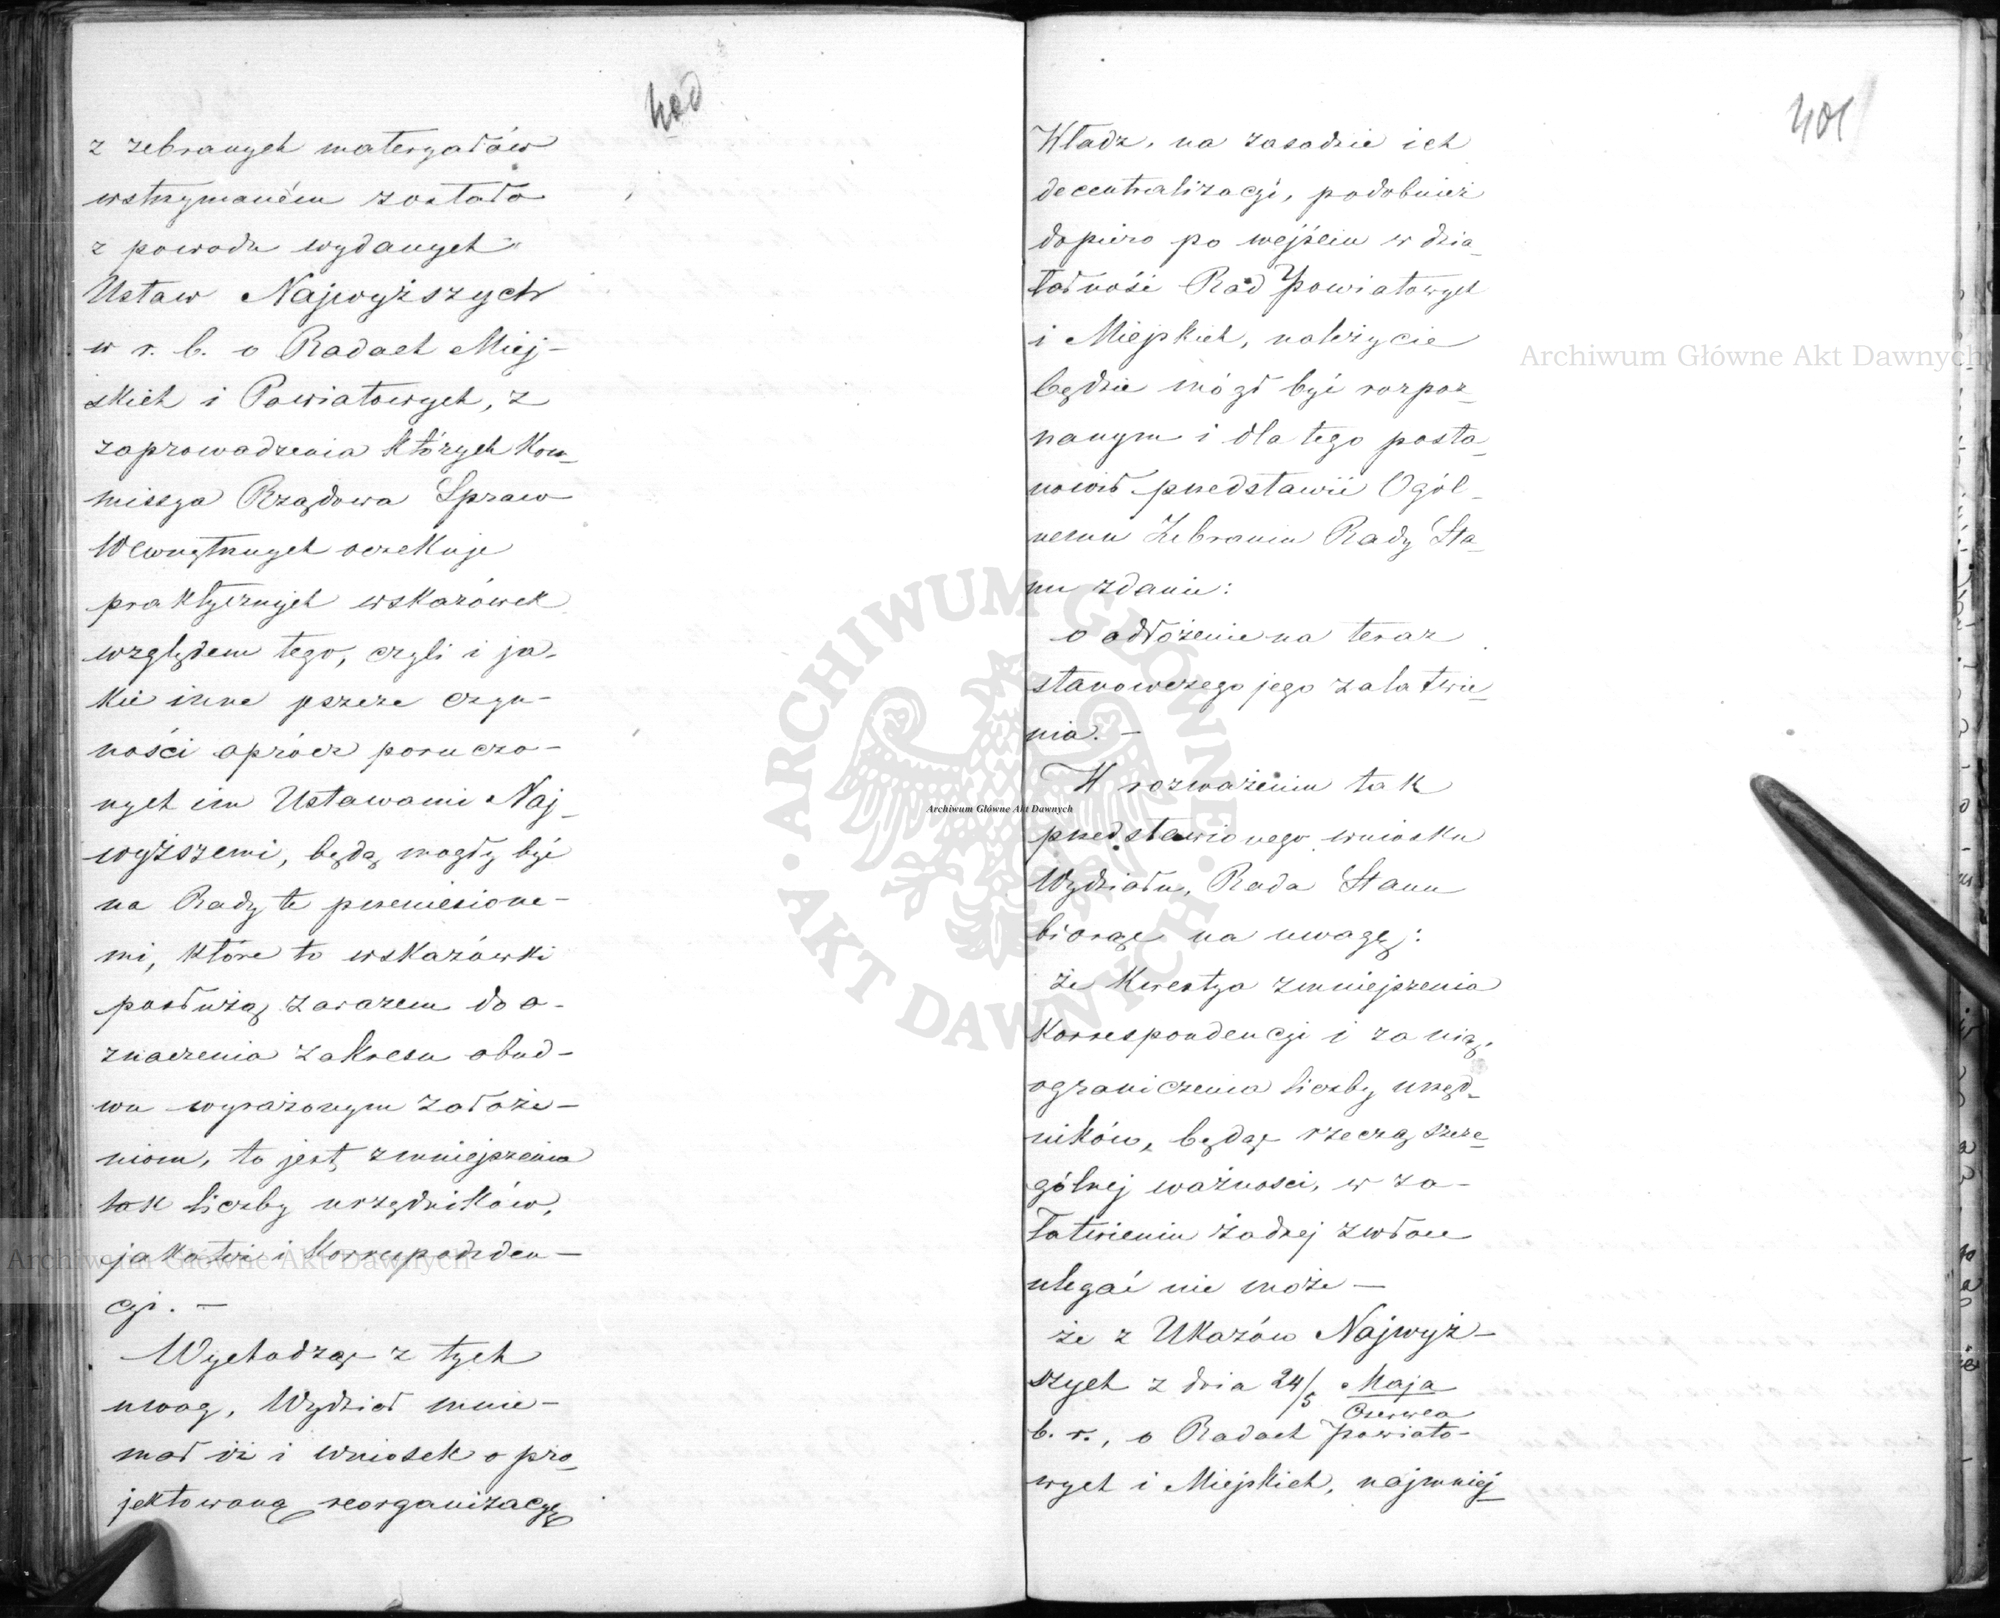 400
z zebranych materyałów
wstrzymaném zostało
z powodu wydanych
Ustaw Najwyższych
w r. b. o Radach Miej-
skich i Powiatowych, z
zaprowadzenia których Kom-
missya Rządowa Spraw
Wewnętrznych oczekuje
praktycznych wskazówek
względem tego, czyli i ja-
kie inne jeszcze czyn-
ności oprócz poruczo-
nych im Ustawami Naj-
wyższemi, będą mogły być
na Rady te przeniesione-
mi, które to wskazówki
posłużą zarazem do o-
znaczenia zakresu obud-
wu wyrażonym założe-
niom, to jest, zmniejszenia
tak liczby urzędników,
jakoteż i Korrespondden-
cyi. —
Wychodząc z tych
uwag, Wydział mnie-
mał iż i wniosek o pro-
jektowaną reorganizacyę
401
Władz, na zasadzie ich
decentralizacyi, podobnież
dopiero po wejściu w dzia-
łalność Rad Powiatowych
i Miejskich, należycie
będzie mógł być rozpoz-
nanym i dla tego posta-
nowił przedstawić Ogól-
nemu Zebraniu Rady Sta-
nu zdanie:
o odłożenie na teraz
stanowczego jego załatwie-
nia. —
W rozważeniu tak
przedstawionego wniosku
Wydziału, Rada Stanu
biorąc na uwagę:
że Kwestya zmniejszenia
Korrespondencyi i za nią,
ograniczenia liczby urzęd-
ników, będąc rzeczą szcze-
gólnej ważności, w za-
łatwieniu żadnej zwłoce
ulegać nie może —
że z Ukazów Najwyż-
szych z dnia 24/5 Maja
Czerwca
b. r., o Radach Powiato-
wych i Miejskich, najmniej
Archiwum Główne Akt Dawnych
Archiwum Główne Akt Dawnych
Archiwum Główne Akt Dawnych
ARCHIWUM GŁÓWNE AKT DAWNYCH